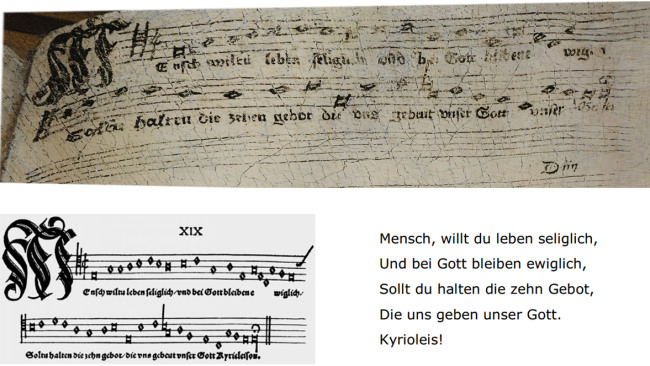 Ensch wiltu lebẽ seliglich vnd bei Gott bleibene wig
Soltu halten die zehen gebot die vns gebeut vnser Gott vnser
Diin
XIX
M
Ensch wiltu leben seliglich/vnd bei Gott bleibene wiglich/
Soltu halten die zehn gebot/die vns gebeut vnser Gott Kyrieleison.
Mensch, willt du leben seliglich,
Und bei Gott bleiben ewiglich,
Sollt du halten die zehn Gebot,
Die uns geben unser Gott.
Kyrioleis!